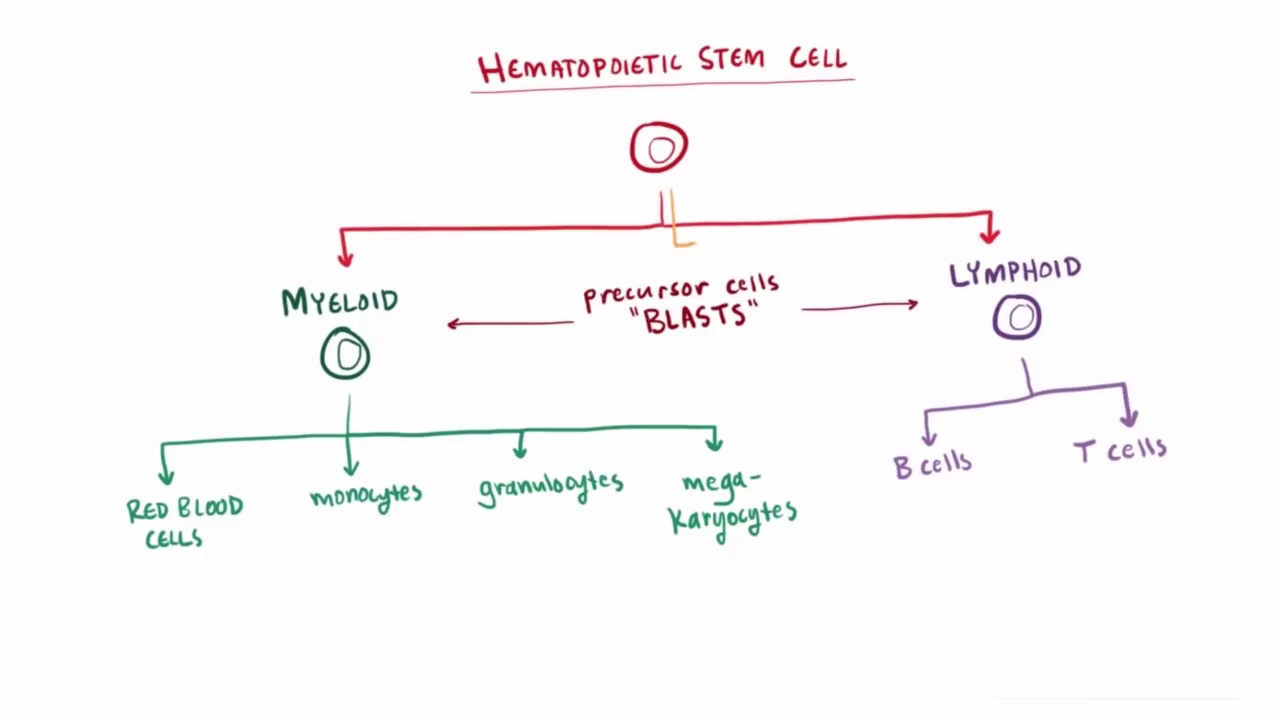 HEMATOPOIETIC STEM CELL
MYELOID
precursor cells
"BLASTS"
LYMPHOID
RED BLOOD
CELLS
monocytes
granulocytes
mega-
karyocytes
B cells
T cells